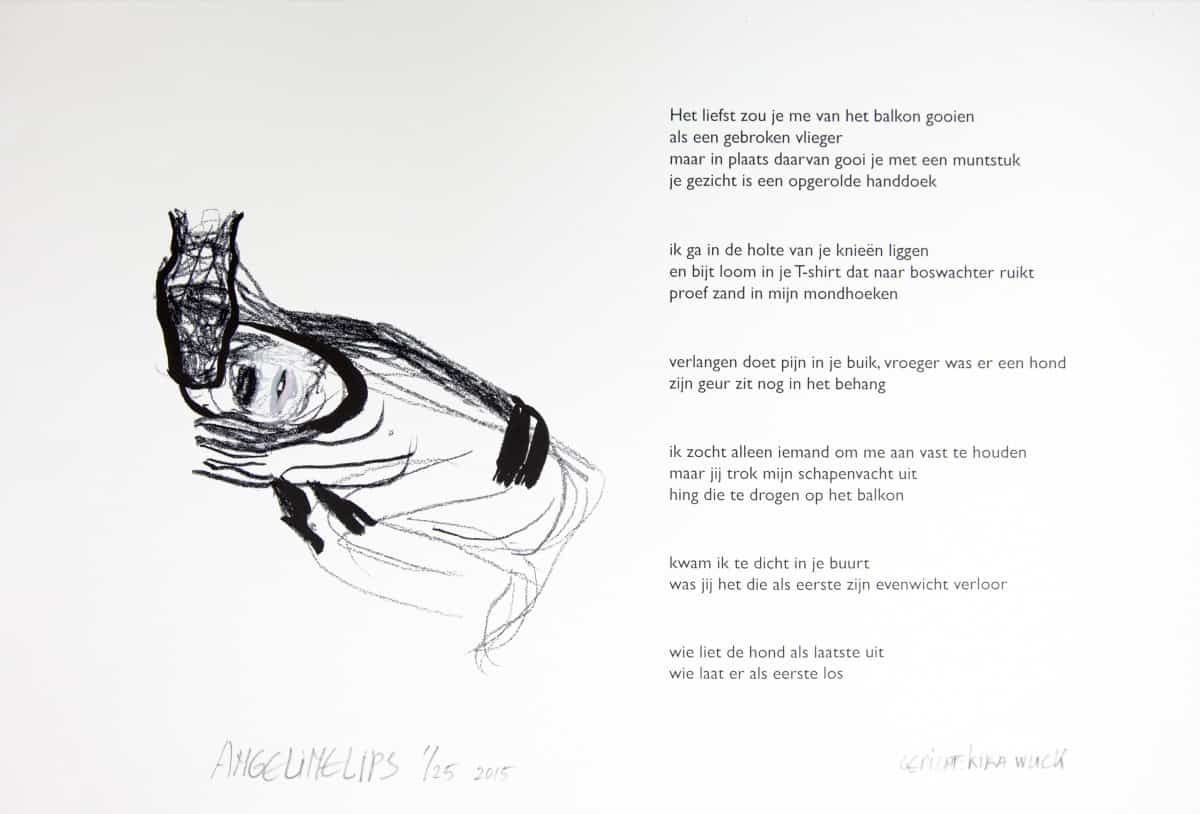 Het liefst zou je me van het balkon gooien
als een gebroken vlieger
maar in plaats daarvan gooi je met een muntstuk
je gezicht is een opgerolde handdoek
ik ga in de holte van je knieën liggen
en bijt loom in je T-shirt dat naar boswachter ruikt
proef zand in mijn mondhoeken
verlangen doet pijn in je buik, vroeger was er een hond
zijn geur zit nog in het behang
ik zocht alleen iemand om me aan vast te houden
maar jij trok mijn schapenvacht uit
hing die te drogen op het balkon
kwam ik te dicht in je buurt
was jij het die als eerste zijn evenwicht verloor
wie liet de hond als laatste uit
wie laat er als eerste los
ANGELINELIPS 1/25 2015
KIRA WUCK